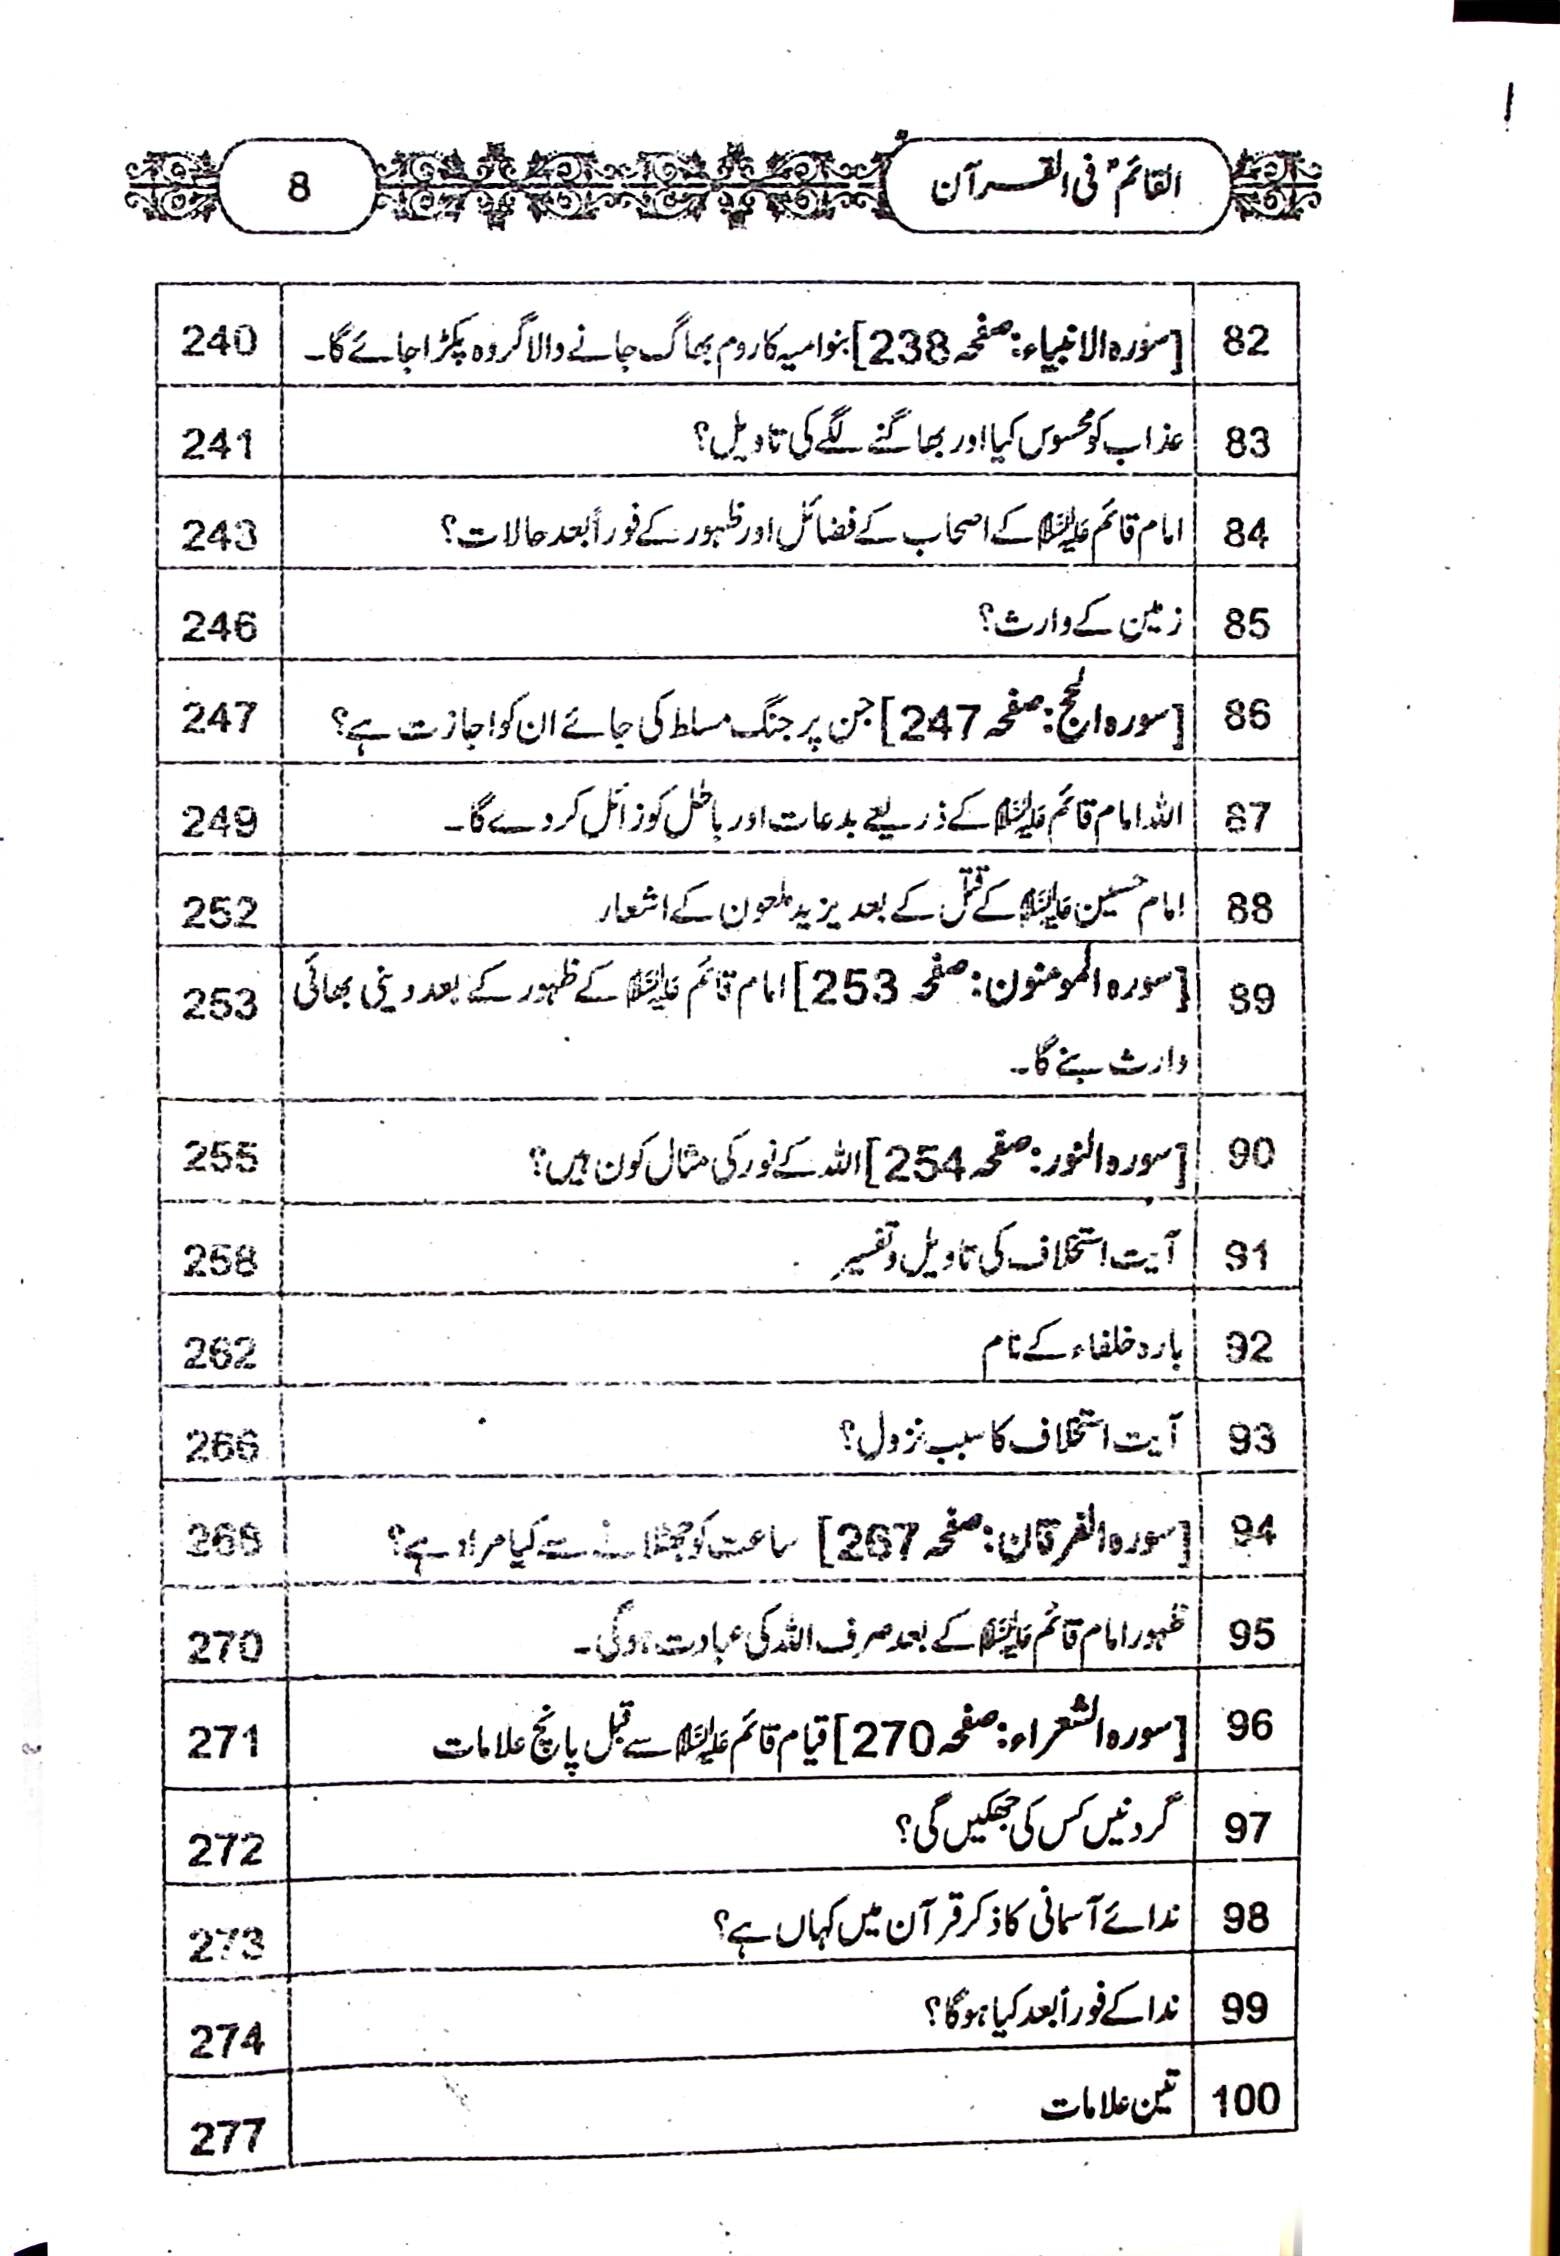 القائمؑ فی القرآن 8
82 [سورہ الانبیاء: صفحہ 238] بنو امیہ کا روم بھاگ جانے والا گروہ پکڑا جائے گا۔ 240
83 عذاب کو محسوس کیا اور بھاگنے لگے کی تاویل؟ 241
84 امام قائم علیہ السلام کے اصحاب کے فضائل اور ظہور کے فوراً بعد حالات؟ 243
85 زمین کے وارث؟ 246
86 [سورہ الحج: صفحہ 247] جن پر جنگ مسلط کی جائے ان کو اجازت ہے؟ 247
87 اللہ امام قائم علیہ السلام کے ذریعے بدعات اور باطل کو زائل کر دے گا۔ 249
88 امام حسین علیہ السلام کے قتل کے بعد یزید ملعون کے اشعار 252
89 [سورہ المومنون: صفحہ 253] امام قائم علیہ السلام کے ظہور کے بعد دینی بھائی 253
وارث بنے گا۔
90 [سورہ النور: صفحہ 254] اللہ کے نور کی مثال کون ہیں؟ 255
91 آیت استخلاف کی تاویل و تفسیر 258
92 بارہ خلفاء کے نام 262
93 آیت استخلاف کا سبب نزول؟ 266
94 [سورہ الفرقان: صفحہ 267] ساعت کو جھٹلانے سے کیا مراد ہے؟
95 ظہور امام قائم علیہ السلام کے بعد صرف اللہ کی عبادت ہوگی۔ 270
96 [سورہ الشعراء: صفحہ 270] قیام قائم علیہ السلام سے قبل پانچ علامات 271
97 گردنیں کس کی جھکیں گی؟ 272
98 ندائے آسمانی کا ذکر قرآن میں کہاں ہے؟ 273
99 ندا کے فوراً بعد کیا ہوگا؟ 274
100 تین علامات 277